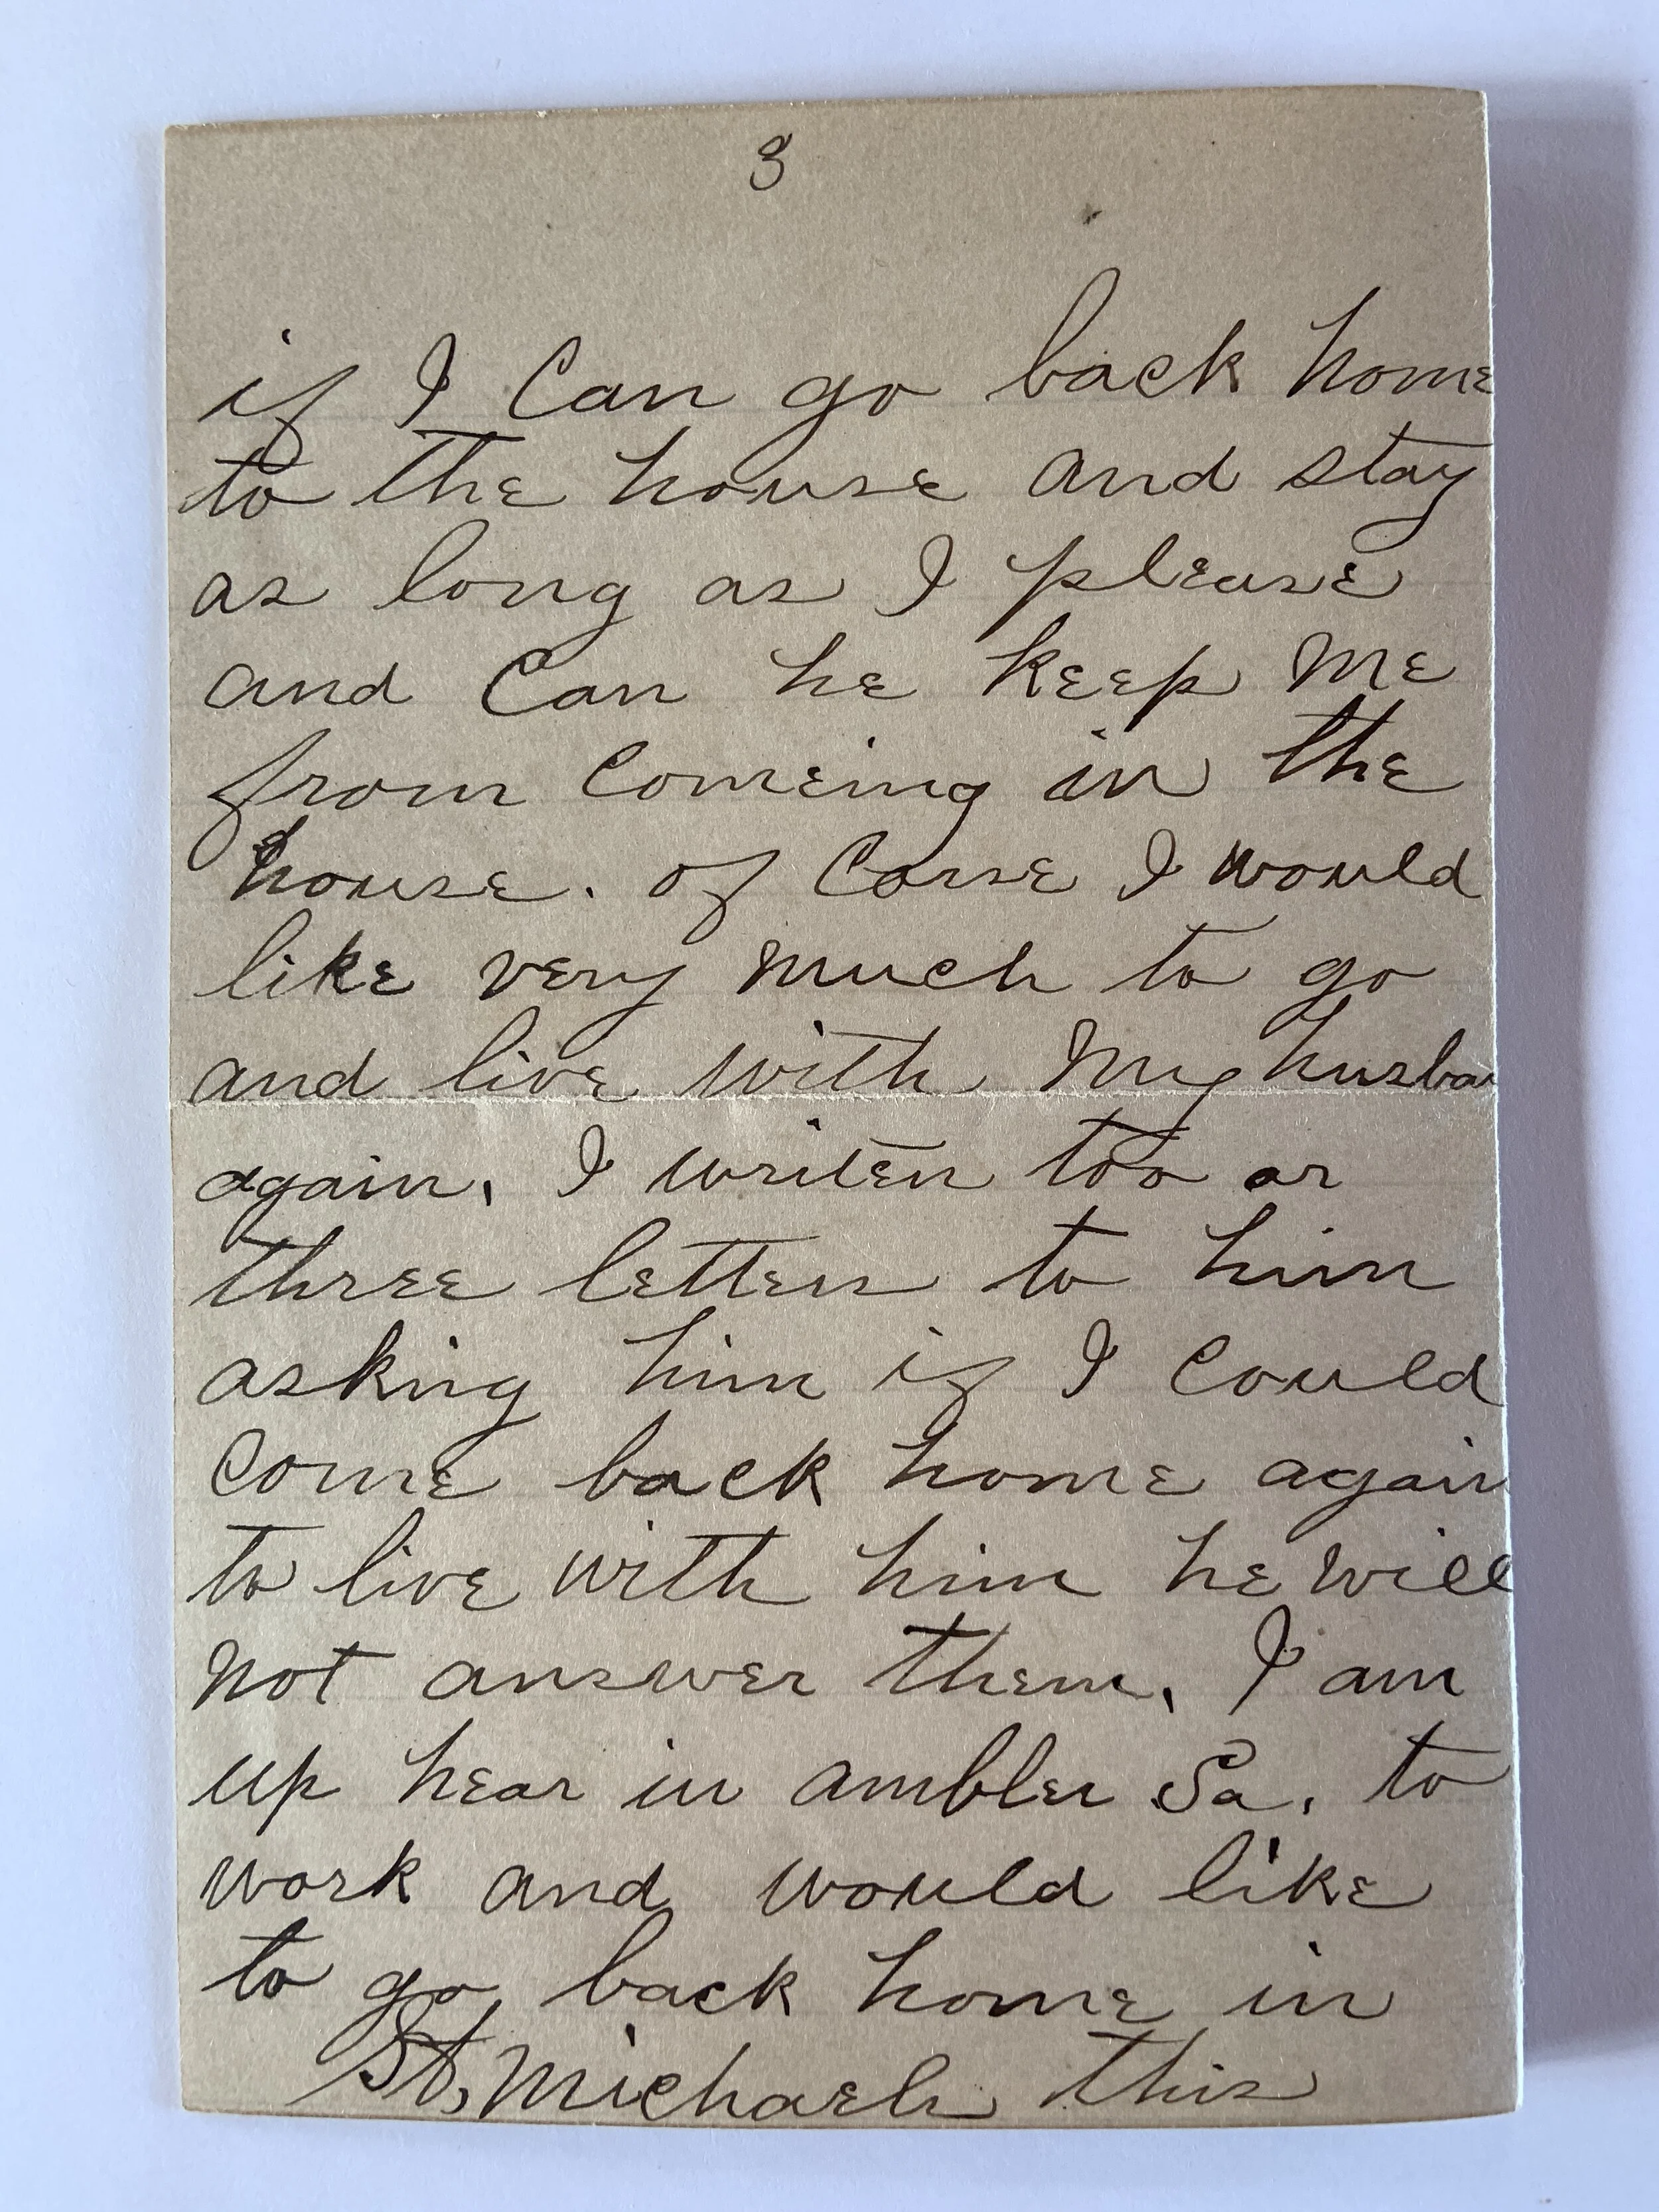 3
if I Can go back home
to the house and stay
as long as I please
and Can he keep me
from Comeing in the
house. of Corse I would
like very much to go
and live with my husba
again, I writen too or
three letters to him
asking him if I Could
Come back home again
to live with him he will
not answer them, I am
up hear in ambler Pa. to
work and would like
to go back home in
St, Michaels this